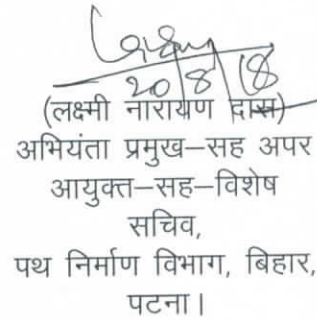 20/8/18
(लक्ष्मी नारायण दास)
अभियंता प्रमुख–सह अपर
आयुक्त–सह–विशेष
सचिव,
पथ निर्माण विभाग, बिहार,
पटना।